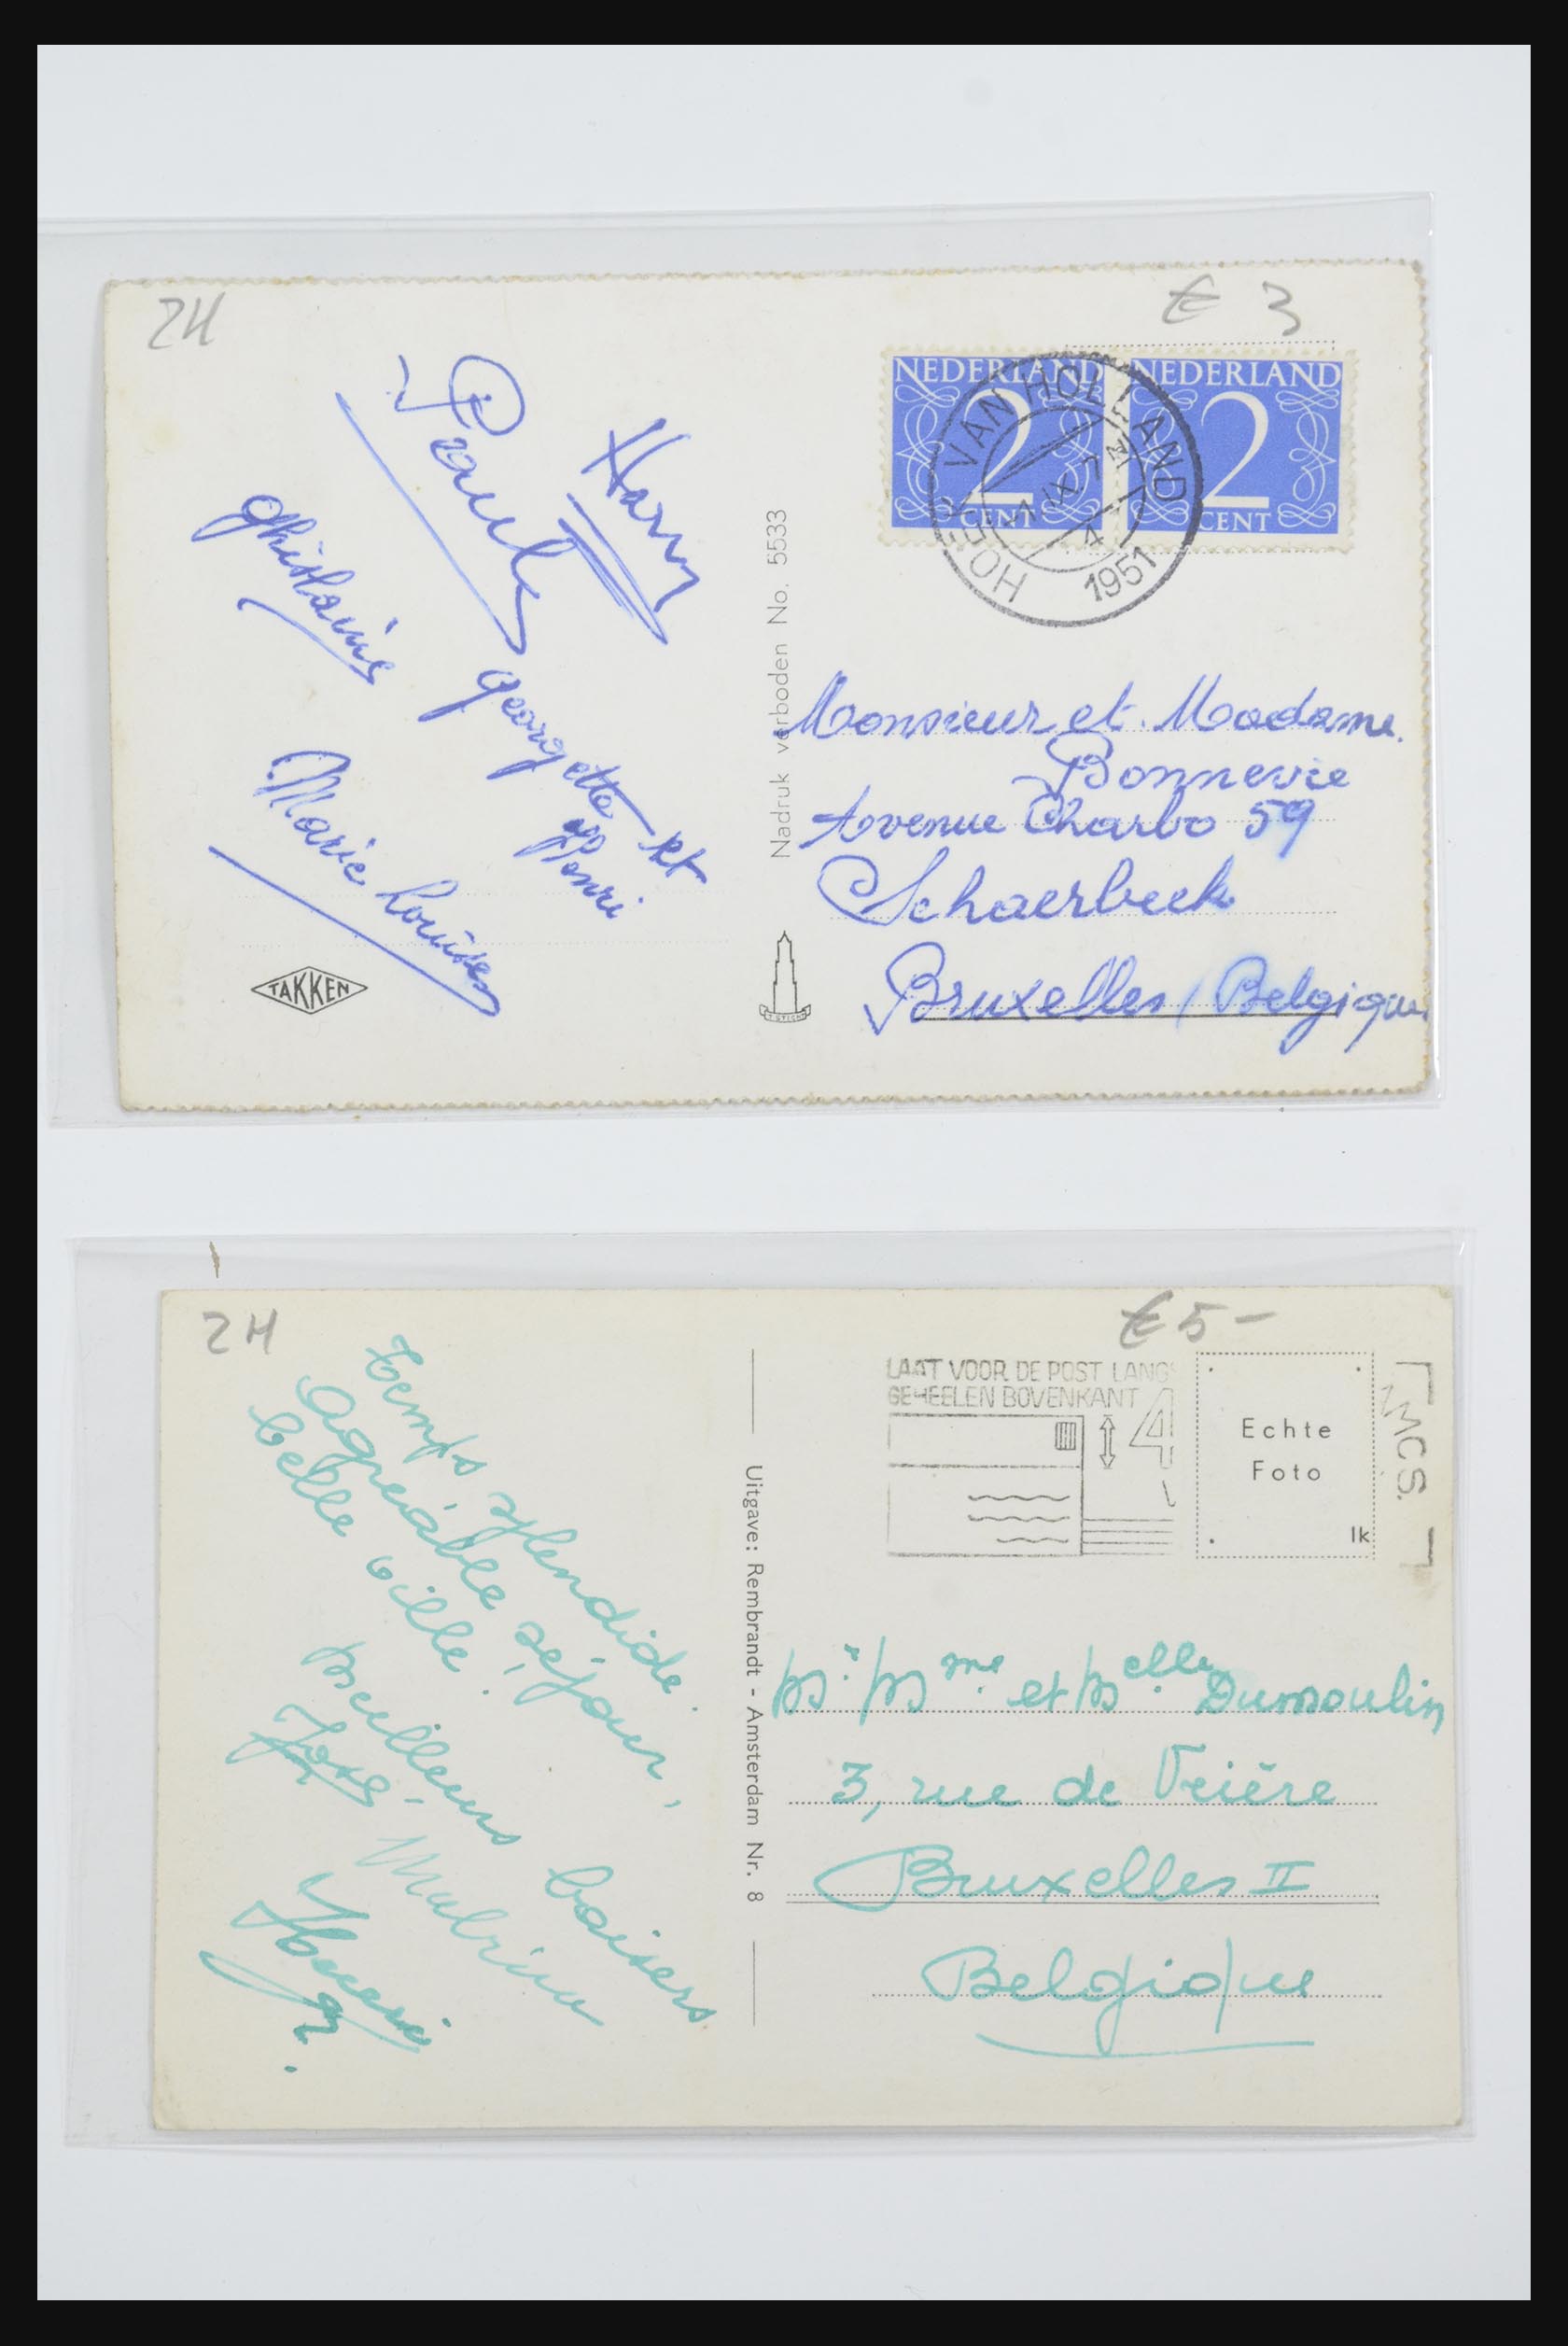 ZH
€ 3
NEDERLAND
2
CENT
NEDERLAND
2
CENT
HOEK VAN HOLLAND
1951
Harry
Paula
Ghislaine
Georgette et
Henri
Marie Louise
TAKKEN
Nadruk verboden No. 5533
Monsieur et Madame
Bonnevie
Avenue Charbo 59
Schaerbeek
Bruxelles / Belgique
ZH
€ 5 -
LAAT VOOR DE POST LANGS
GEHEELEN BOVENKANT 4
Echte
Foto
lk
Temps splendide.
Agréable séjour,
belle ville.
Meilleurs baisers
José.
Henri
Uitgave: Rembrandt - Amsterdam Nr. 8
Mr. Mme. et Melle. Dumoulin
3, rue de Veière
Bruxelles II
Belgique